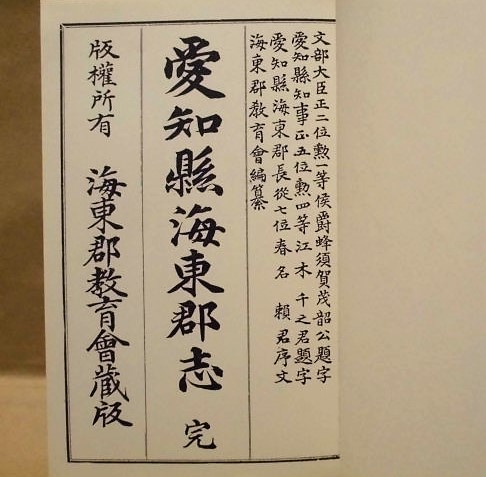 文部大臣正二位勲一等侯爵蜂須賀茂韶公題字
愛知縣知事正五位勲四等江木千之君題字
愛知縣海東郡長從七位春名頼君序文
海東郡敎育會編纂
愛知縣海東郡志 完
版權所有 海東郡敎育會藏版